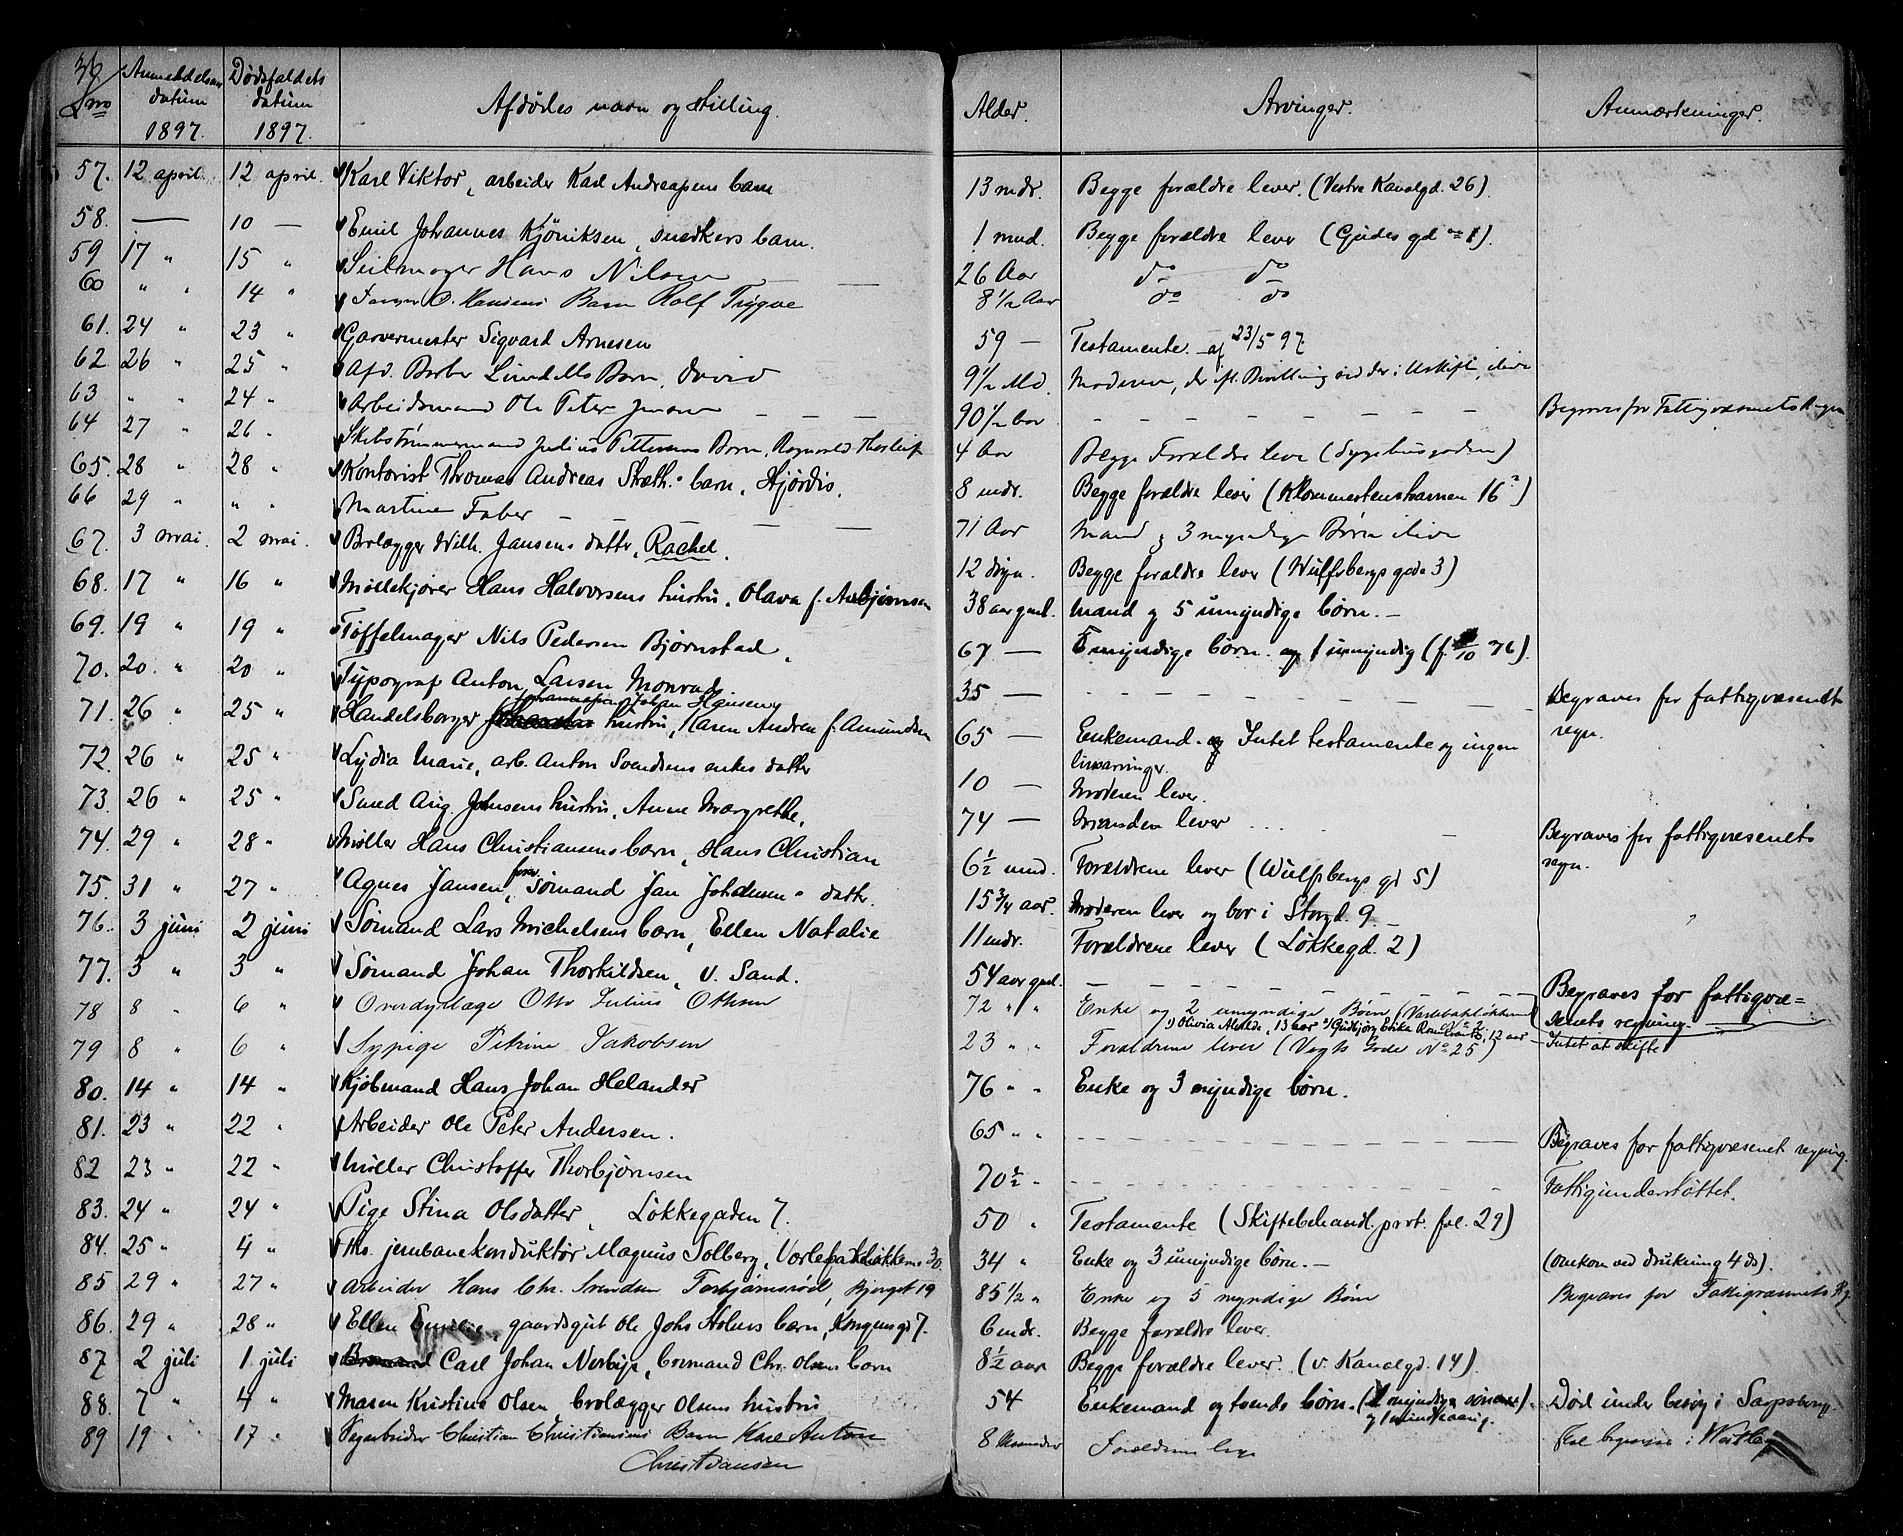 36
Lno Anmeldelsens datum 1897. Dødsfaldets datum 1897. Afdødes navn og stilling. Alder. Arvinger. Anmærkninger.
57. 12 april. 12 april. Karl Viktor, arbeider Karl Andreassens barn 13 mdr. Begge forældre lever. (Vestre Kanalgd. 26).
58. — 10 — Emil Johannes Kjøniksen, snedkers barn. 1 mnd. Begge forældre lever (Gudes gd 1).
59 17 " 15 " Seilmager Hans Nilsen — 26 Aar do do
60 " " 14 " C. Hansens Barn Rolf Trygve 8 1/2 Aar do do
61. 24 " 23 " Garvermester Sigvard Arnesen 59 — Testamente af 23/5 97.
62 26 " 25 " Afd. Barber Lundells Barn, David 9 1/2 Md. Moderen, der
63 " " 24 " Arbeidsmand Ole Peter Jensen — — — 90 1/2 Aar — — — Begraves for Fattigvæsenets Regn
64 27 " 26 " Skibstømmermand Julius Pettersens Barn, Ragnvald Thorleif 4 Aar Begge Forældre leve (Sygehusgaden)
65. 28 " 28 " Kontorist Thomas Andreas Stræth.s barn, Hjørdis. 8 mdr. Begge forældre lever (Klommestenskarmen 16 2)
66 29 " " " Martine Faber — — — — 71 Aar Mand og 3 myndige Børn ilive
67. 3 mai. 2 mai. Brolægger Wilh. Jansens datter, Rachel. 12 døgn. Begge forældre lever (Wulfsbergs gade 3)
68. 17 " 16 " Møllekjører Hans Halvorsens hustru, Olava f. Asbjørnsen 38 aar gml. Mand og 5 umyndige børn. —
69. 19 " 19 " Tøffelmager Nils Pedersen Bjørnstad, 67 — myndige børn og 1 umyndig (f. /10 76).
70. 20. " 20 " Typograf Anton Larsen Monrad. 35 — — — — Begraves for fattigvæsenets regn.
71. 26 " 25 " Handelsborger Johan Hansens hustru, Karen Andrea f. Amundsen 65 — Enkemand. Intet testamente og ingen livsarvinger.
72. 26 " 25 " Lydia Marie, arb. Anton Svendsens enkes datter 10 — Moderen lever.
73. 26 " 25 " Smed Aug. Johnsens hustru, Anne Margrethe. 74 — Manden lever . . . — Begraves for fattigvæsenets regn.
74. 29 " 28 " Møller Hans Christiansens barn, Hans Christian 6 1/2 mnd. Forældrene lever (Wulfsbergs gd 5)
75. 31 " 27 " Agnes Jansen, Sømand Jan Johansens datter. 15 3/4 aar. Moderen lever og bor i Storgd. 9 —
76. 3 juni 2 juni Sømand Lars Michelsens barn, Ellen Natalie 11 mdr. Forældrene lever (Løkkegd. 2)
77. 3 " 3 " Sømand Johan Thorkildsen, v. Sand. 54 aar gml. — — — Begraves for fattigvæ=
senets regning.
78 8 " 6 " Otto Julius Othsen 72 " " Enke og 2 umyndige Børn
1) Olivia 13 aar 2) Gudbjørg Erika 12 aar — Intet at skifte
79 8 " 6 " Sypige Petrine Jakobsen 23 " " Forældrene lever (Vogts Gade No 25)
80. 14 " 14 " Kjøbmand Hans Johan Helander 76 " " Enke og 3 myndige børn.
81. 23 " 22 " Arbeider Ole Peter Andersen. 65 " " — — — Begraves for fattigvæsenet regning.
82 23 " 22 " Møller Christoffer Thorbjørnsen 70 1/2 " — — — Fattigunderstøttet.
83. 24 " 24 " Pige Stina Olsdatter, Løkkegaden 7. 50 " Testamente (Skiftebehandl. prot. fol. 29)
84. 25 " 4 " Fhv. jernbanekonduktør Magnus Solberg, Vørlebakløkkerne 30. 34 " Enke og 3 umyndige børn. — (omkom ved drukning 4 ds).
85 29 " 27 " Arbeider Hans Chr. Svendsen Torbjørnsrød, Bjerget 19 85 1/2 " Enke og 5 myndige Børn Begraves for Fattigvæsenets Rg
86. 29 " 28 " Ellen Emilie, gaardsgut Ole Johs Holms barn, Kongensgd 7. 6 mdr. Begge forældre lever.
87 2 juli 1. juli Carl Johan Norbye, Chr. Olsens barn 8 1/2 aar Begge forældre lever. (v. Kanalgd. 14).
88. 7 " 4 " Maren Kristine Olsen brolægger Olsens hustru 54 Enkemand og børn. Død under besøg i Sarpsborg.
89 19 " 17 " Christian Christiansens Barn Karl Anton
Christiansen 8 Maaneder Forældrene begraves i